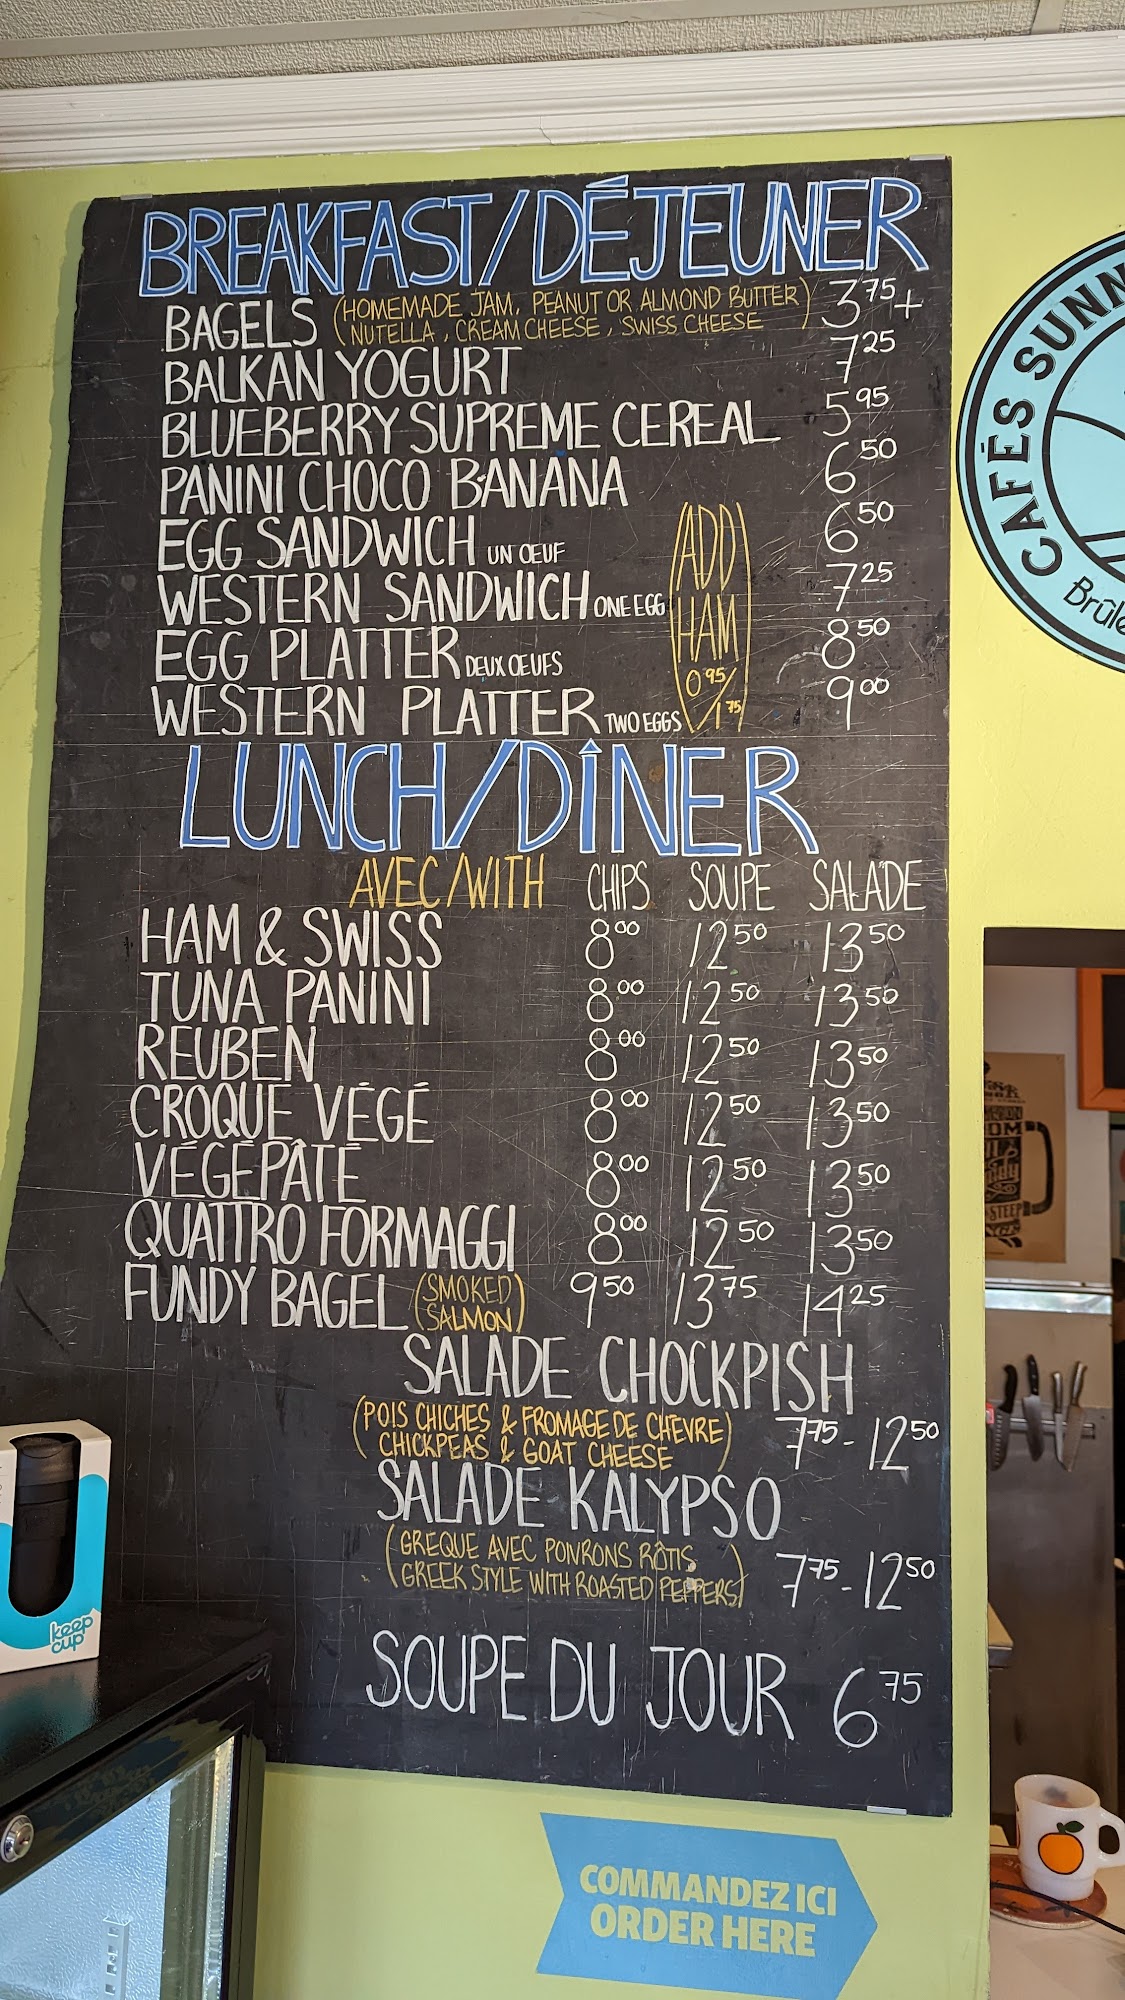 BREAKFAST/DÉJEUNER
BAGELS (HOMEMADE JAM, PEANUT OR ALMOND BUTTER 3.75+
NUTELLA, CREAM CHEESE, SWISS CHEESE)
BALKAN YOGURT 7.25
BLUEBERRY SUPREME CEREAL 5.95
PANINI CHOCO BANANA 6.50
EGG SANDWICH UN OEUF 6.50
WESTERN SANDWICH ONE EGG 7.25
EGG PLATTER DEUX OEUFS 8.50
WESTERN PLATTER TWO EGGS 9.00
(ADD
HAM
0.95/
1.75)
LUNCH/DÎNER
AVEC/WITH CHIPS SOUPE SALADE
HAM & SWISS 8.00 12.50 13.50
TUNA PANINI 8.00 12.50 13.50
REUBEN 8.00 12.50 13.50
CROQUE VÉGÉ 8.00 12.50 13.50
VÉGÉPÂTÉ 8.00 12.50 13.50
QUATTRO FORMAGGI 8.00 12.50 13.50
FUNDY BAGEL (SMOKED SALMON) 9.50 13.75 14.25
SALADE CHOCKPISH
(POIS CHICHES & FROMAGE DE CHEVRE)
CHICKPEAS & GOAT CHEESE 7.75 - 12.50
SALADE KALYPSO
(GREQUE AVEC POIVRONS RÔTIS
GREEK STYLE WITH ROASTED PEPPERS) 7.75 - 12.50
SOUPE DU JOUR 6.75
COMMANDEZ ICI
ORDER HERE
CAFÉS SUNN
Brûle
keep
cup